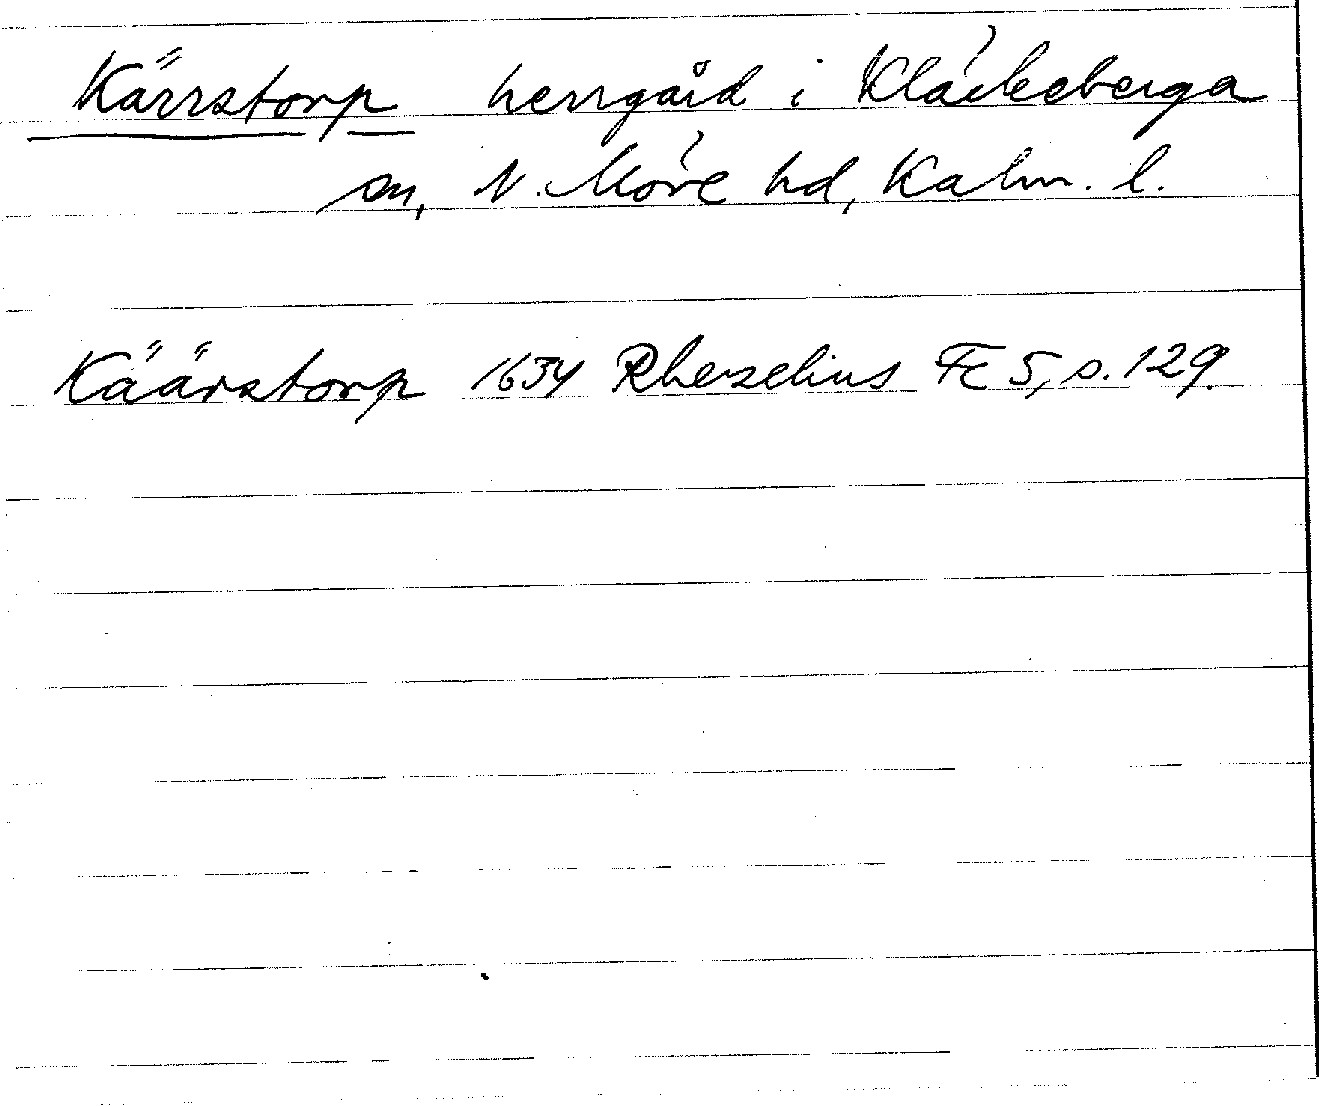 Kärrstorp herrgård i Kläckeberga
sn, N. Möre hd, Kalm. l.
Käärstorp 1634 Rhezelius Fc 5, s. 129.